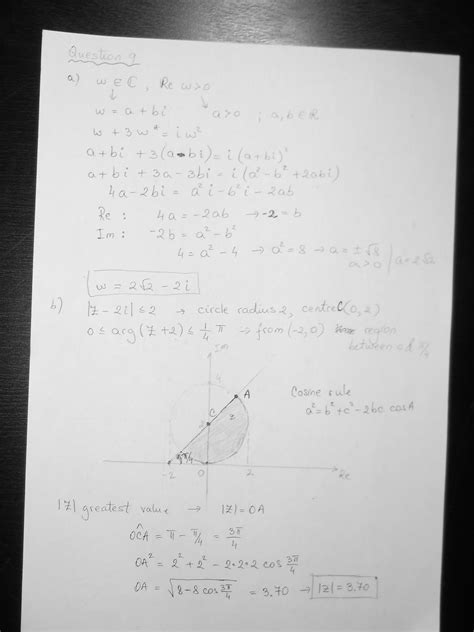 Question 9
a) w ∈ ℂ, Re w>0
w = a + bi a>0 ; a,b ∈ ℝ
w + 3w* = i w²
a+bi + 3(a-bi) = i (a+bi)²
a+bi + 3a - 3bi = i(a² - b² + 2abi)
4a - 2bi = a²i - b²i - 2ab
Re : 4a = -2ab → -2 = b
Im : -2b = a² - b²
4 = a² - 4 → a² = 8 → a = ± √8
a>0 | a = 2√2
w = 2√2 - 2i
b) |z - 2i| ≤ 2 → circle radius 2, centre C(0, 2)
0 ≤ arg(z+2) ≤ 1/4 π → from (-2, 0) region
between 0 & π/4
Im
4
A
Cosine rule
a² = b² + c² - 2bc cosA
C
2
z
π/4
-2 0 2 Re
|z| greatest value → |z| = OA
OĈA = π - π/4 = 3π/4
OA² = 2² + 2² - 2·2·2 cos 3π/4
OA = √(8 - 8 cos 3π/4) = 3.70 → |z| = 3.70